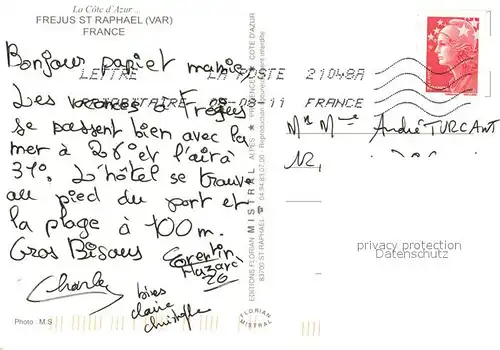 La Côte d'Azur...
FREJUS ST RAPHAEL (VAR)
FRANCE
Bonjour papi et mamie
LETTRE LA POSTE 21048A
Les vacances à Fréjus
08-11 FRANCE
se passent bien avec la
mer à 26° et l'air à
31°. L'hôtel se trouve
au pied du port et
la plage à 100m.
Gros Bisous
Charles
Corentin
26
bises
claire
christophe
Photo : M.S
EDITIONS FLORIAN MISTRAL ALPES ★ PROVENCE ★ COTE D'AZUR
83700 ST RAPHAEL ☎ 04.94.83.07.00 Reproduction interdite
FLORIAN
MISTRAL
Mr Mme André TURCANT
12,
privacy protection
Datenschutz